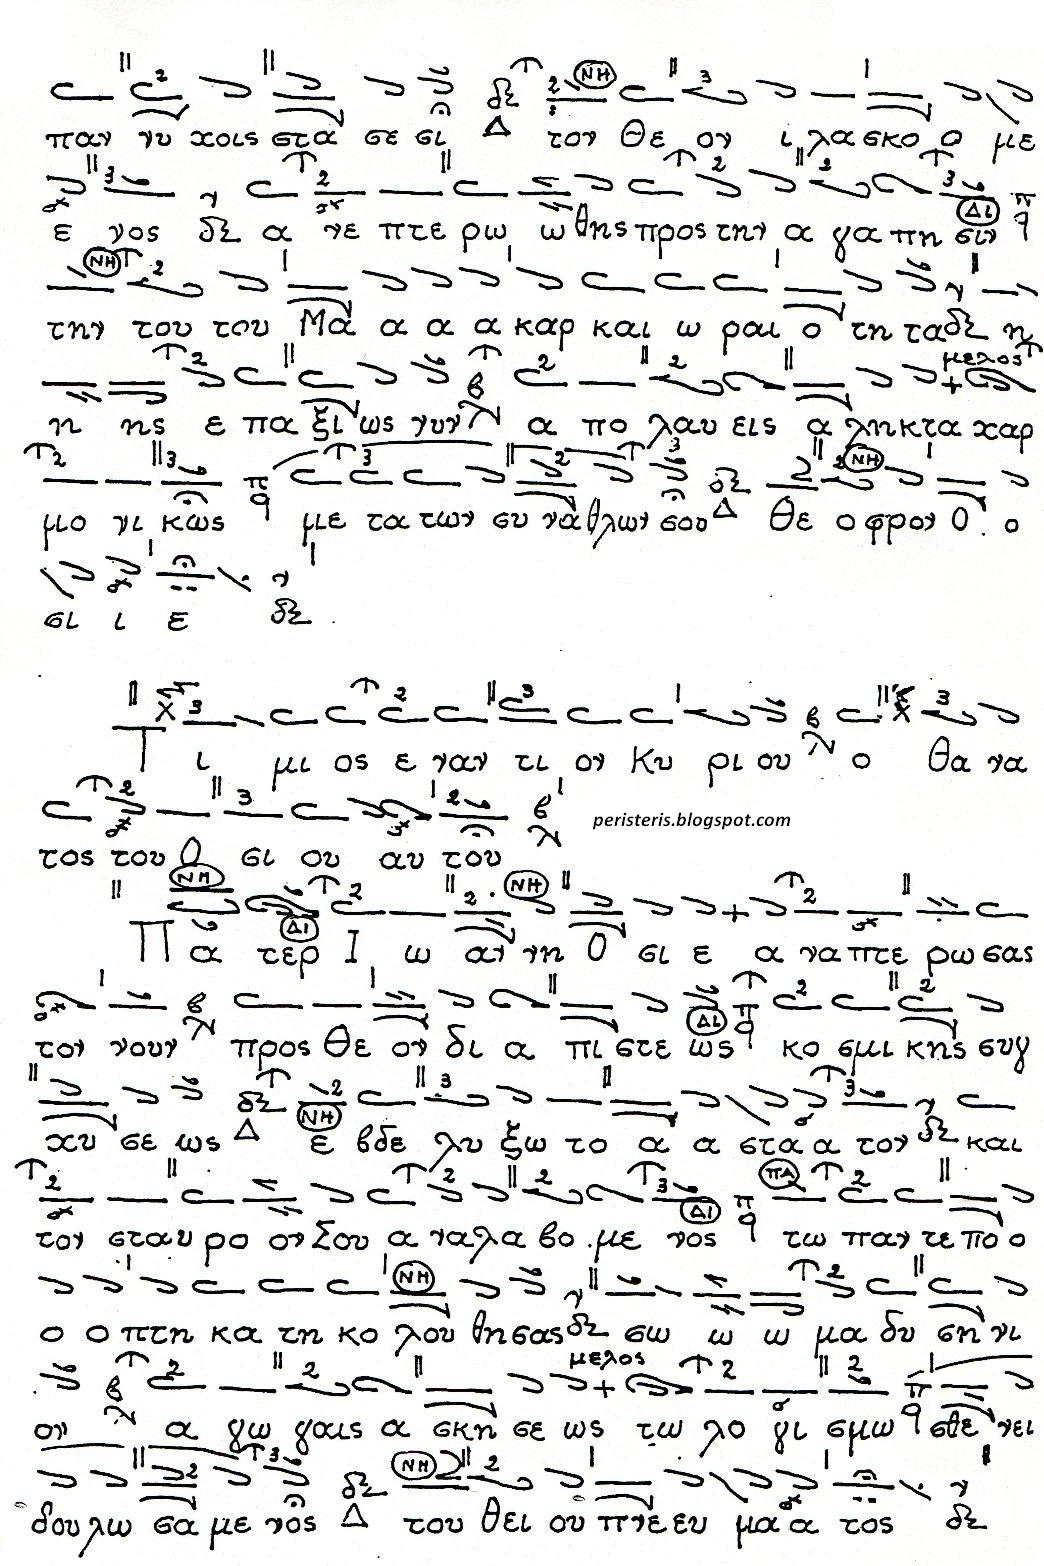 παν νυ χοις στα σε σι Δ τον Θε ον ι λασκο ο με
ε νος δι α νε πτε ρω ω θης προς την α γα πη σιν
την του του Μα α α α καρ και ω ραι ο τη τα δι η
η ης ε πα ξι ως νυν α πο λαυ εις α ληκτα χαρ
μο νι κως με τα των συ ναθλων σου Δ Θε ο φρον Ο ο
σι ι ε
Τ ι μι ος ε ναν τι ον Κυ ρι ου ο θα να
τος του Ο σι ου αυ του
peristeris.blogspot.com
Π α τερ Ι ω αν νη Ο σι ε α να πτε ρω σας
τον νουν προς Θε ον δι α πι στε ως κο σμι κης συγ
χυ σε ως Δ ε βδε λυ ξω το α α στα α τον και
τον σταυ ρο ον Σου α να λα βο με νος τω παν τε πο ο
ο ο πτη κα τη κο λου θησας σω ω ω μα δυ ση νι
ον α γω γαις α σκη σε ως τω λο γι σμω σθε νει
δου λω σα με νος Δ του θει ου πνε ευ μα α τος